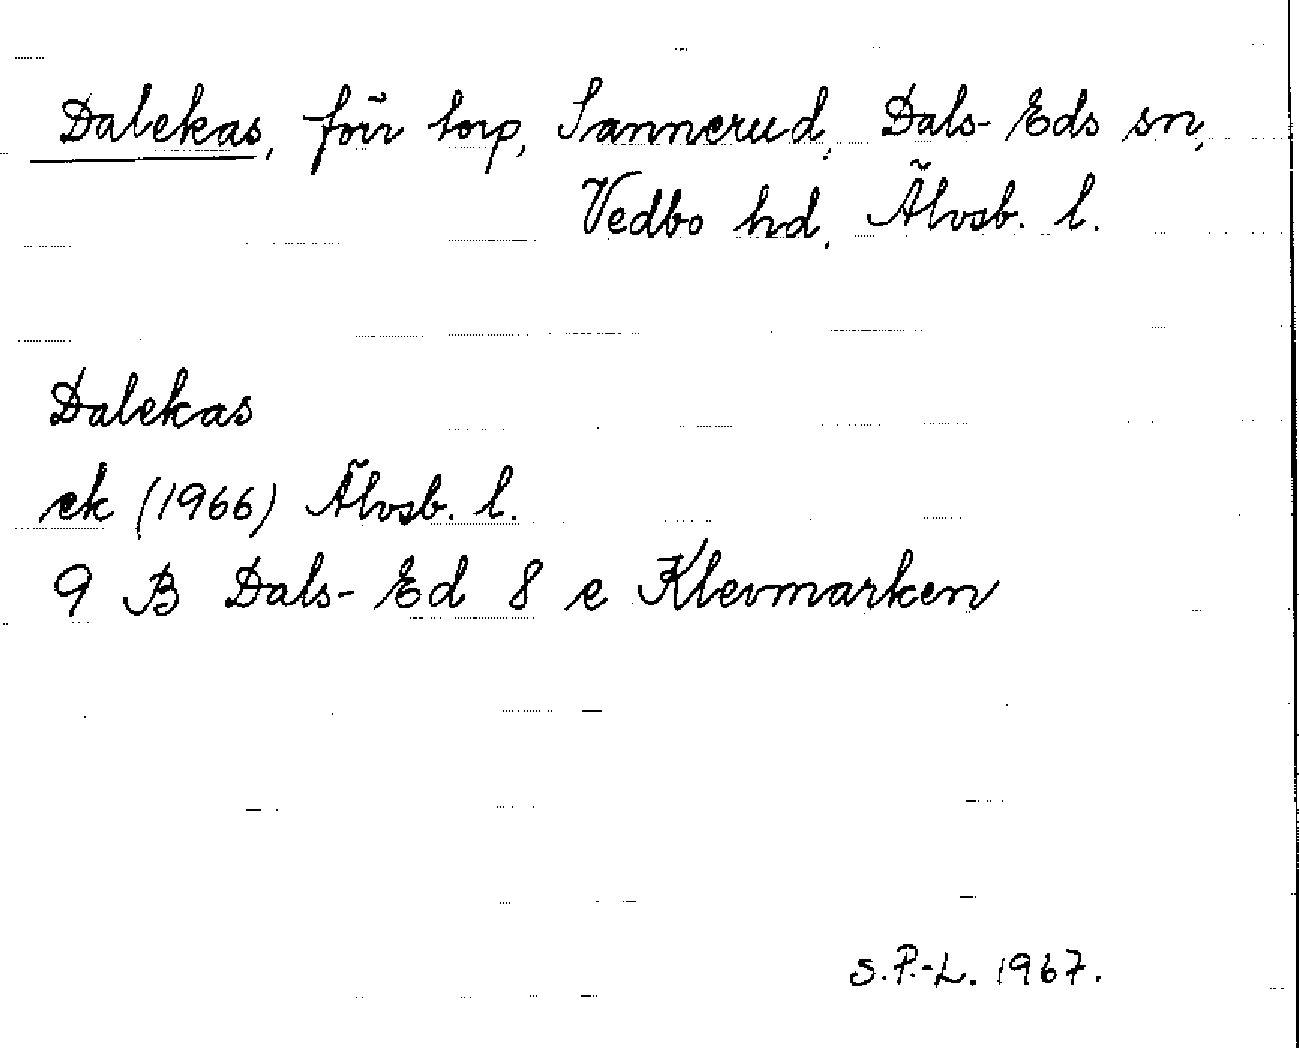 Dalekas, förr torp, Sannerud, Dals-Eds sn,
Vedbo hd, Älvsb. l.
Dalekas
ek (1966) Älvsb. l.
9 B Dals-Ed 8 e Klevmarken
S.P.-L. 1967.